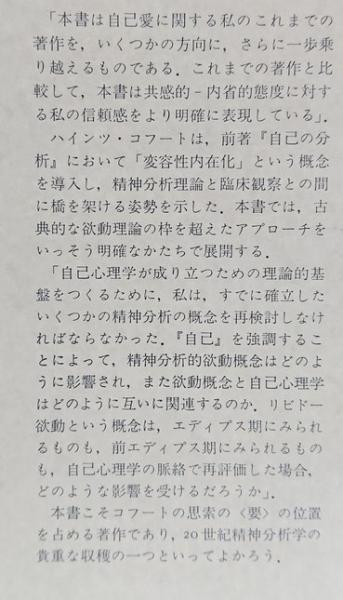 「本書は自己愛に関する私のこれまでの
著作を，いくつかの方向に，さらに一歩乗
り越えるものである．これまでの著作と比
較して，本書は共感的－内省的態度に対す
る私の信頼感をより明確に表現している」．
ハインツ・コフートは，前著『自己の分
析』において「変容性内在化」という概念
を導入し，精神分析理論と臨床観察との間
に橋を架ける姿勢を示した．本書では，古
典的な欲動理論の枠を超えたアプローチを
いっそう明確なかたちで展開する．
「自己心理学が成り立つための理論的基
盤をつくるために，私は，すでに確立した
いくつかの精神分析の概念を再検討しなけ
ればならなかった．『自己』を強調するこ
とによって，精神分析的欲動概念はどのよ
うに影響され，また欲動概念と自己心理学
はどのように互いに関連するのか．リビドー
欲動という概念は，エディプス期にみられ
るものも，前エディプス期にみられるもの
も，自己心理学の脈絡で再評価した場合，
どのような影響を受けるだろうか」．
本書こそコフートの思索の〈要〉の位置
を占める著作であり，20世紀精神分析学の
貴重な収穫の一つといってよかろう．